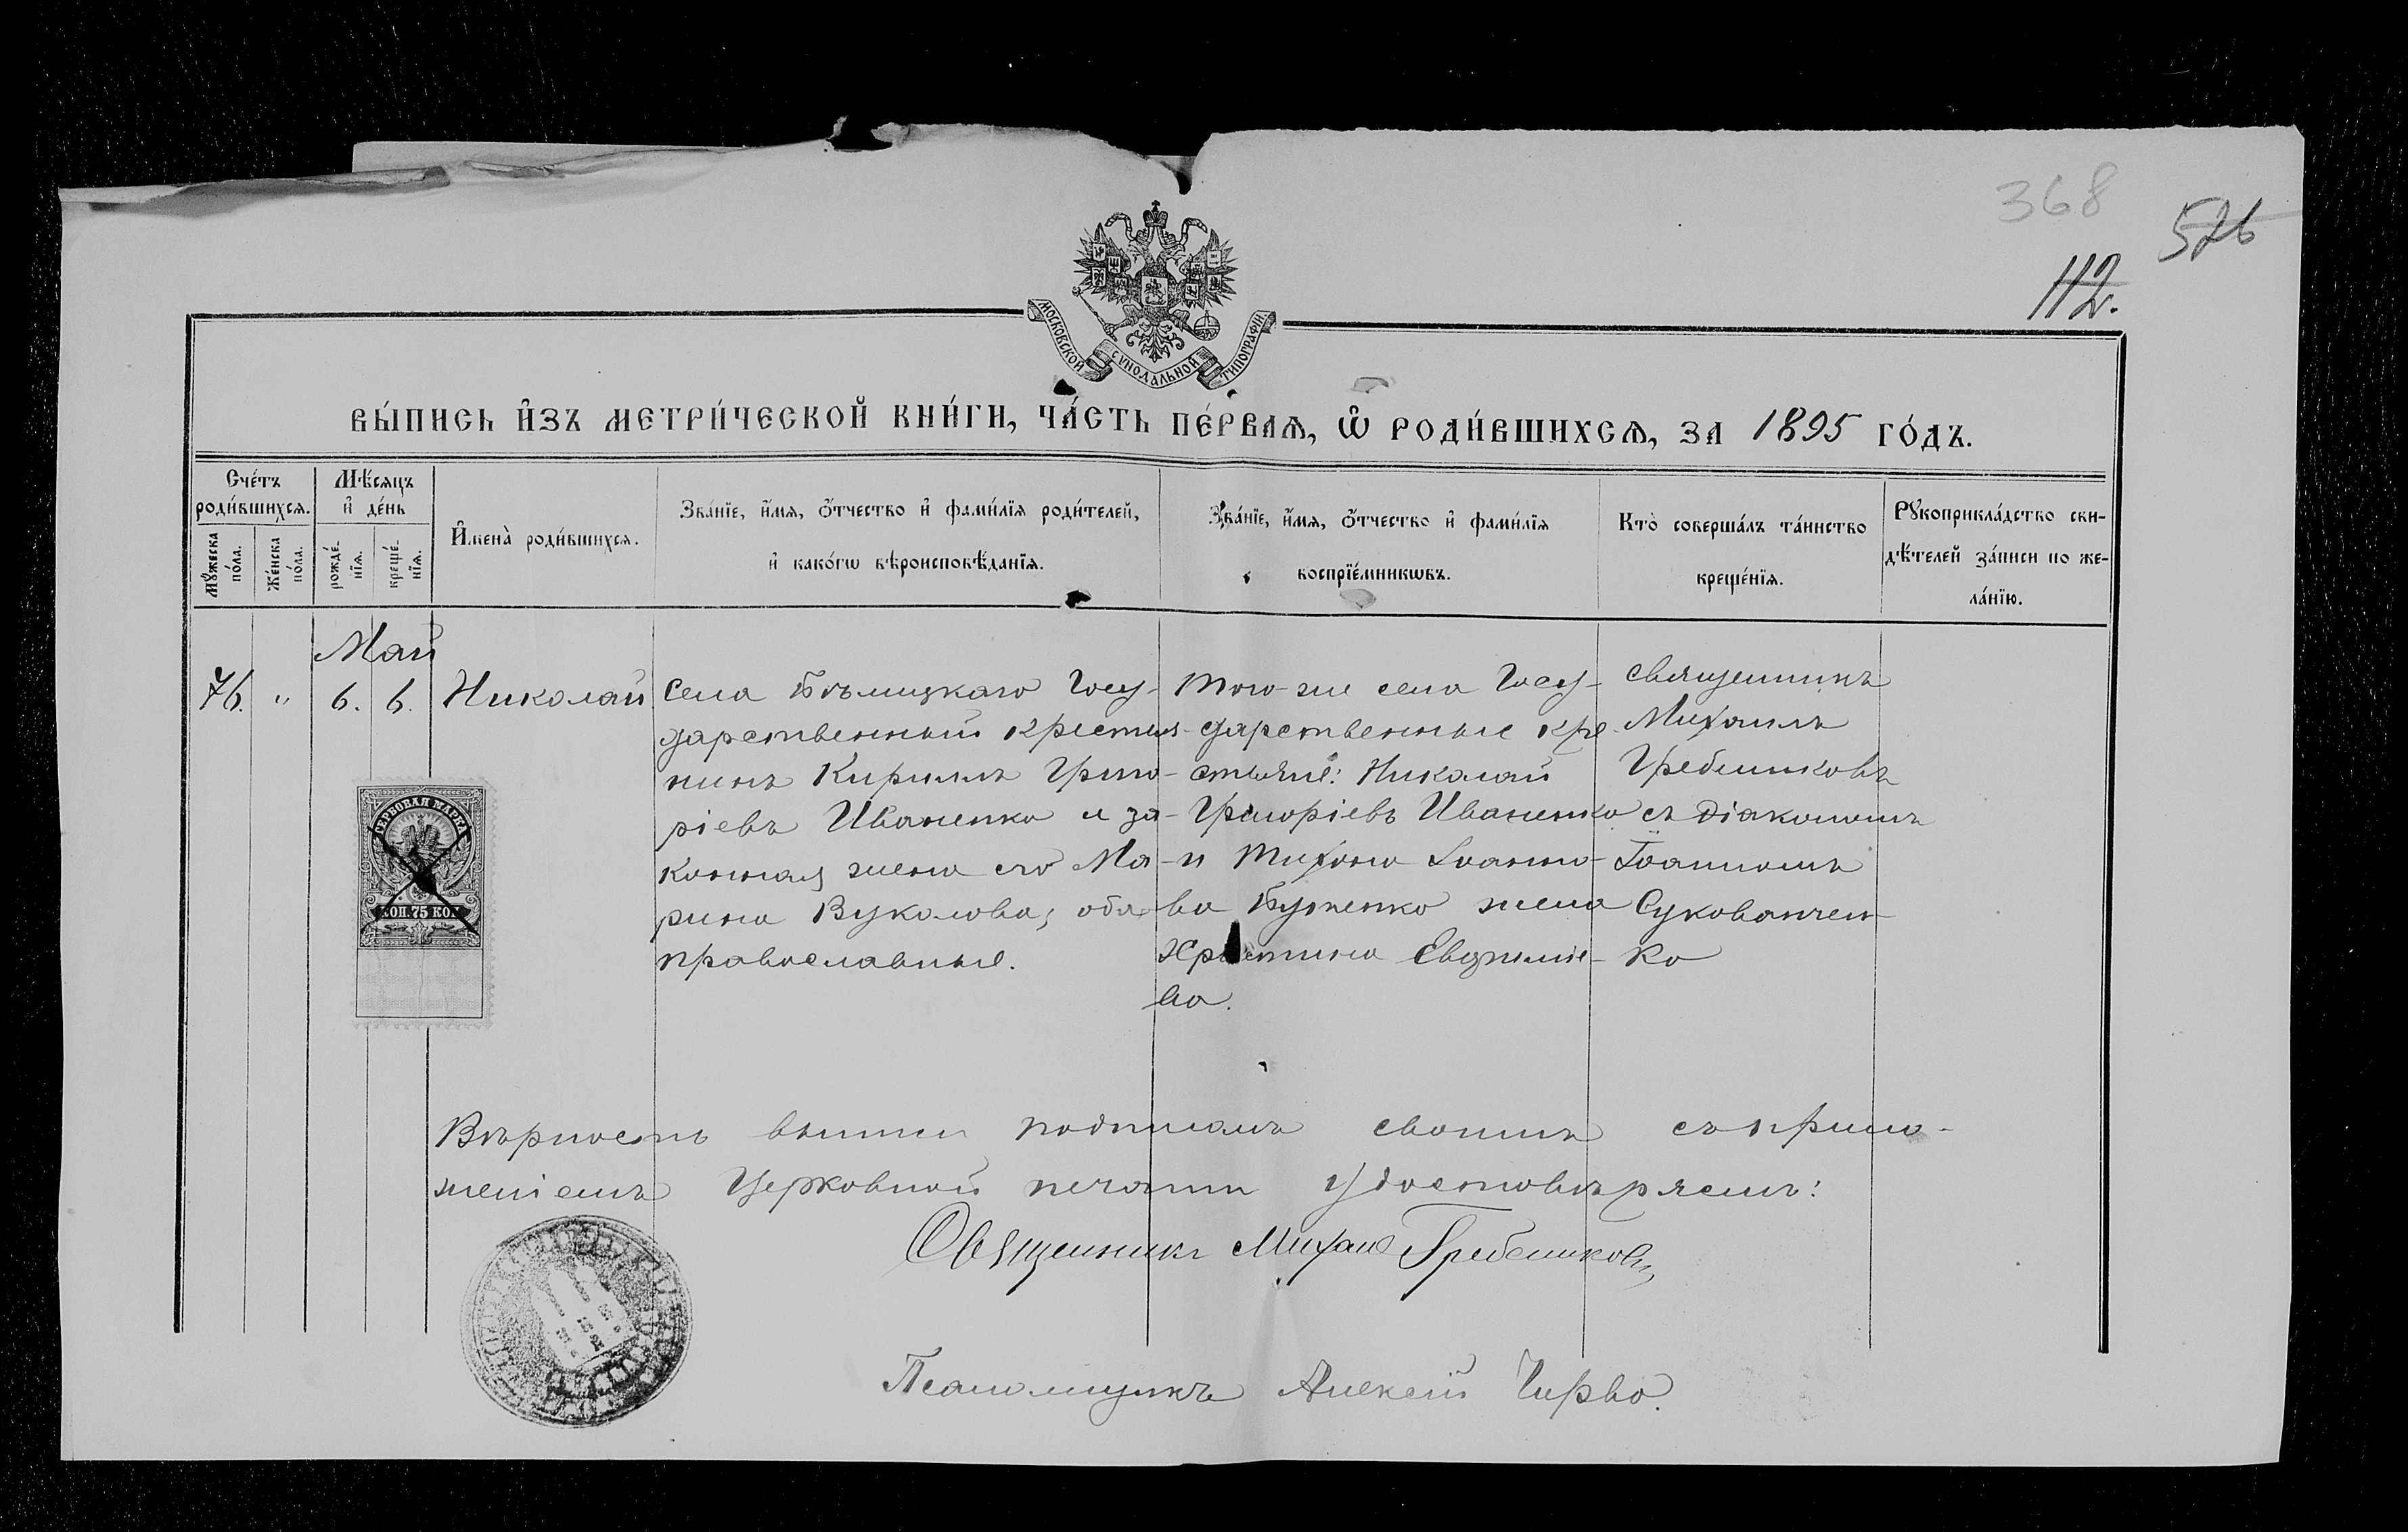 368
526
112.
МОСКОВСКОЙ СѴНОДАЛЬНОЙ ТИПОГРАФІИ
ВЫ́ПИСЬ И҆ЗЪ МЕТРИ́ЧЕСКОЙ КНИ́ГИ, ЧА́СТЬ ПЕ́РВАѦ, Ѽ РОДИ́ВШИХСѦ, ЗА 1895 ГО́ДЪ.
Сче́тъ роди́вшихсѧ.
Мꙋ́жеска по́ла.
Же́нска по́ла.
Мѣ́сяцъ и҆ де́нь
рожде́нїѧ.
креще́нїѧ.
И҆мена̀ роди́вшихсѧ.
Зва́нїе, и҆́мѧ, о҆́тчество и҆ фами́лїѧ роди́телей,
и҆ како́гѡ вѣроисповѣ́данїѧ.
Зва́нїе, и҆́мѧ, о҆́тчество и҆ фами́лїѧ
воспрїе́мникѡвъ.
Кто̀ соверша́лъ та́инство
креще́нїѧ.
Рꙋкоприкла́дство сви-
дѣ́телей за́писи по же-
ла́нїю.
Май
76. " 6. 6. Николай
Села Бѣлицкаго Госу-
дарственный крестья-
нинъ Кириллъ Григо-
ріевъ Иваненко и за-
конная жена его Ма-
рина Вуколова, оба
православные.
Того-же села Госу-
дарственные кре-
стьяне: Николай
Григоріевъ Иваненко
и Тихона Іоанно-
ва Бутенко жена
Христина Евфиміе-
ва.
Священникъ
Михаилъ
Гребенниковъ
съ Діакономъ
Іоанномъ
Суковатчен-
ко
ГЕРБОВАЯ МАРКА
КОП. 75 КОП.
Вѣрность выписи подписомъ своимъ съ прило-
женіемъ Церковной печати удостовѣряемъ:
Священникъ Михаилъ Гребенниковъ
Псаломщикъ Алексій Чирво.